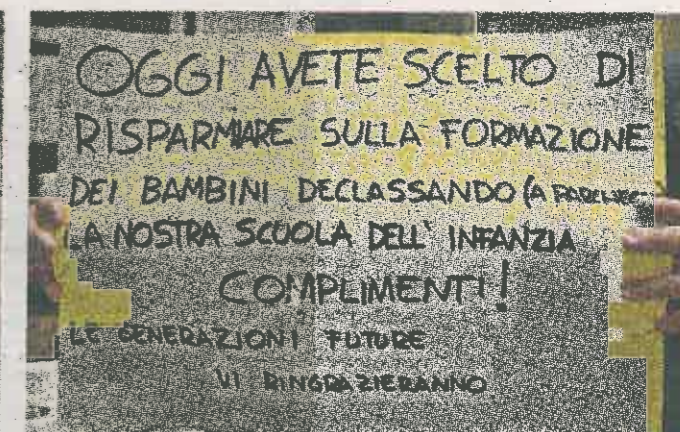 OGGI AVETE SCELTO DI
RISPARMIARE SULLA FORMAZIONE
DEI BAMBINI DECLASSANDO (A
LA NOSTRA SCUOLA DELL' INFANZIA
COMPLIMENTI!
LE GENERAZIONI FUTURE
VI RINGRAZIERANNO